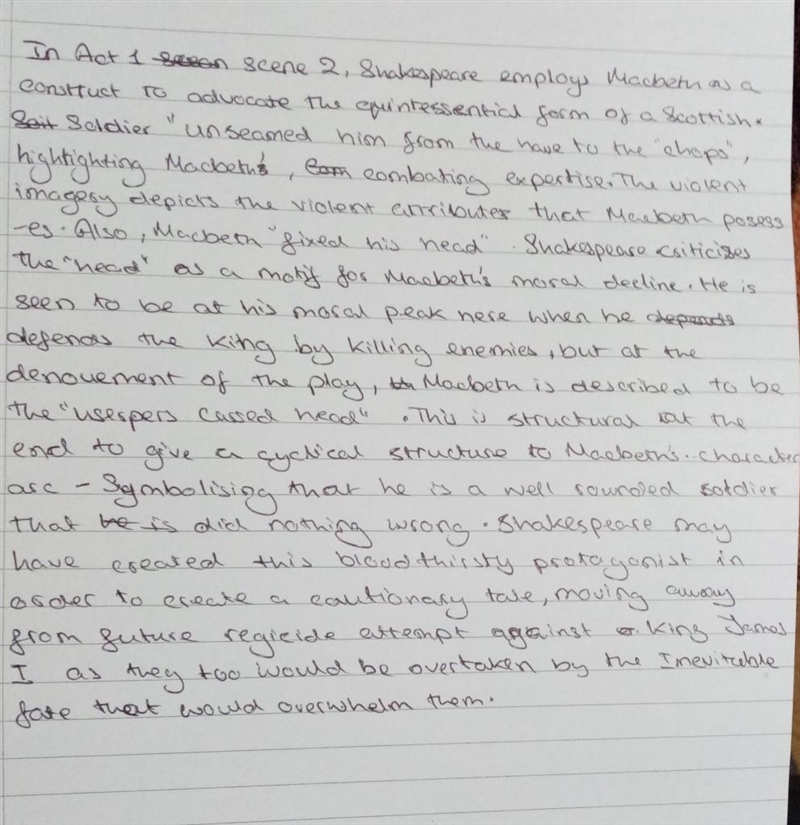 In Act 1 scene 2, Shakespeare employs Macbeth as a
construct to advocate the quintessential form of a Scottish.
Soldier "unseamed him from the nave to the "chops",
highlighting Macbeth's, combating expertise. The violent
imagery depicts the violent attributes that Macbeth posess
-es. Also, Macbeth "fixed his head". Shakespeare criticizes
the "head" as a motif for Macbeth's moral decline. He is
seen to be at his moral peak here when he
defends the king by killing enemies, but at the
denouement of the play, Macbeth is described to be
the "usespers cassed head". This is structural at the
end to give a cyclical structure to Macbeth's. character
arc - Symbolising that he is a well rounded soldier
that did nothing wrong. Shakespeare may
have created this bloodthirsty protagonist in
order to create a cautionary tale, moving away
from future regicide attempt against King James
I as they too would be overtaken by the Inevitable
fate that would overwhelm them.